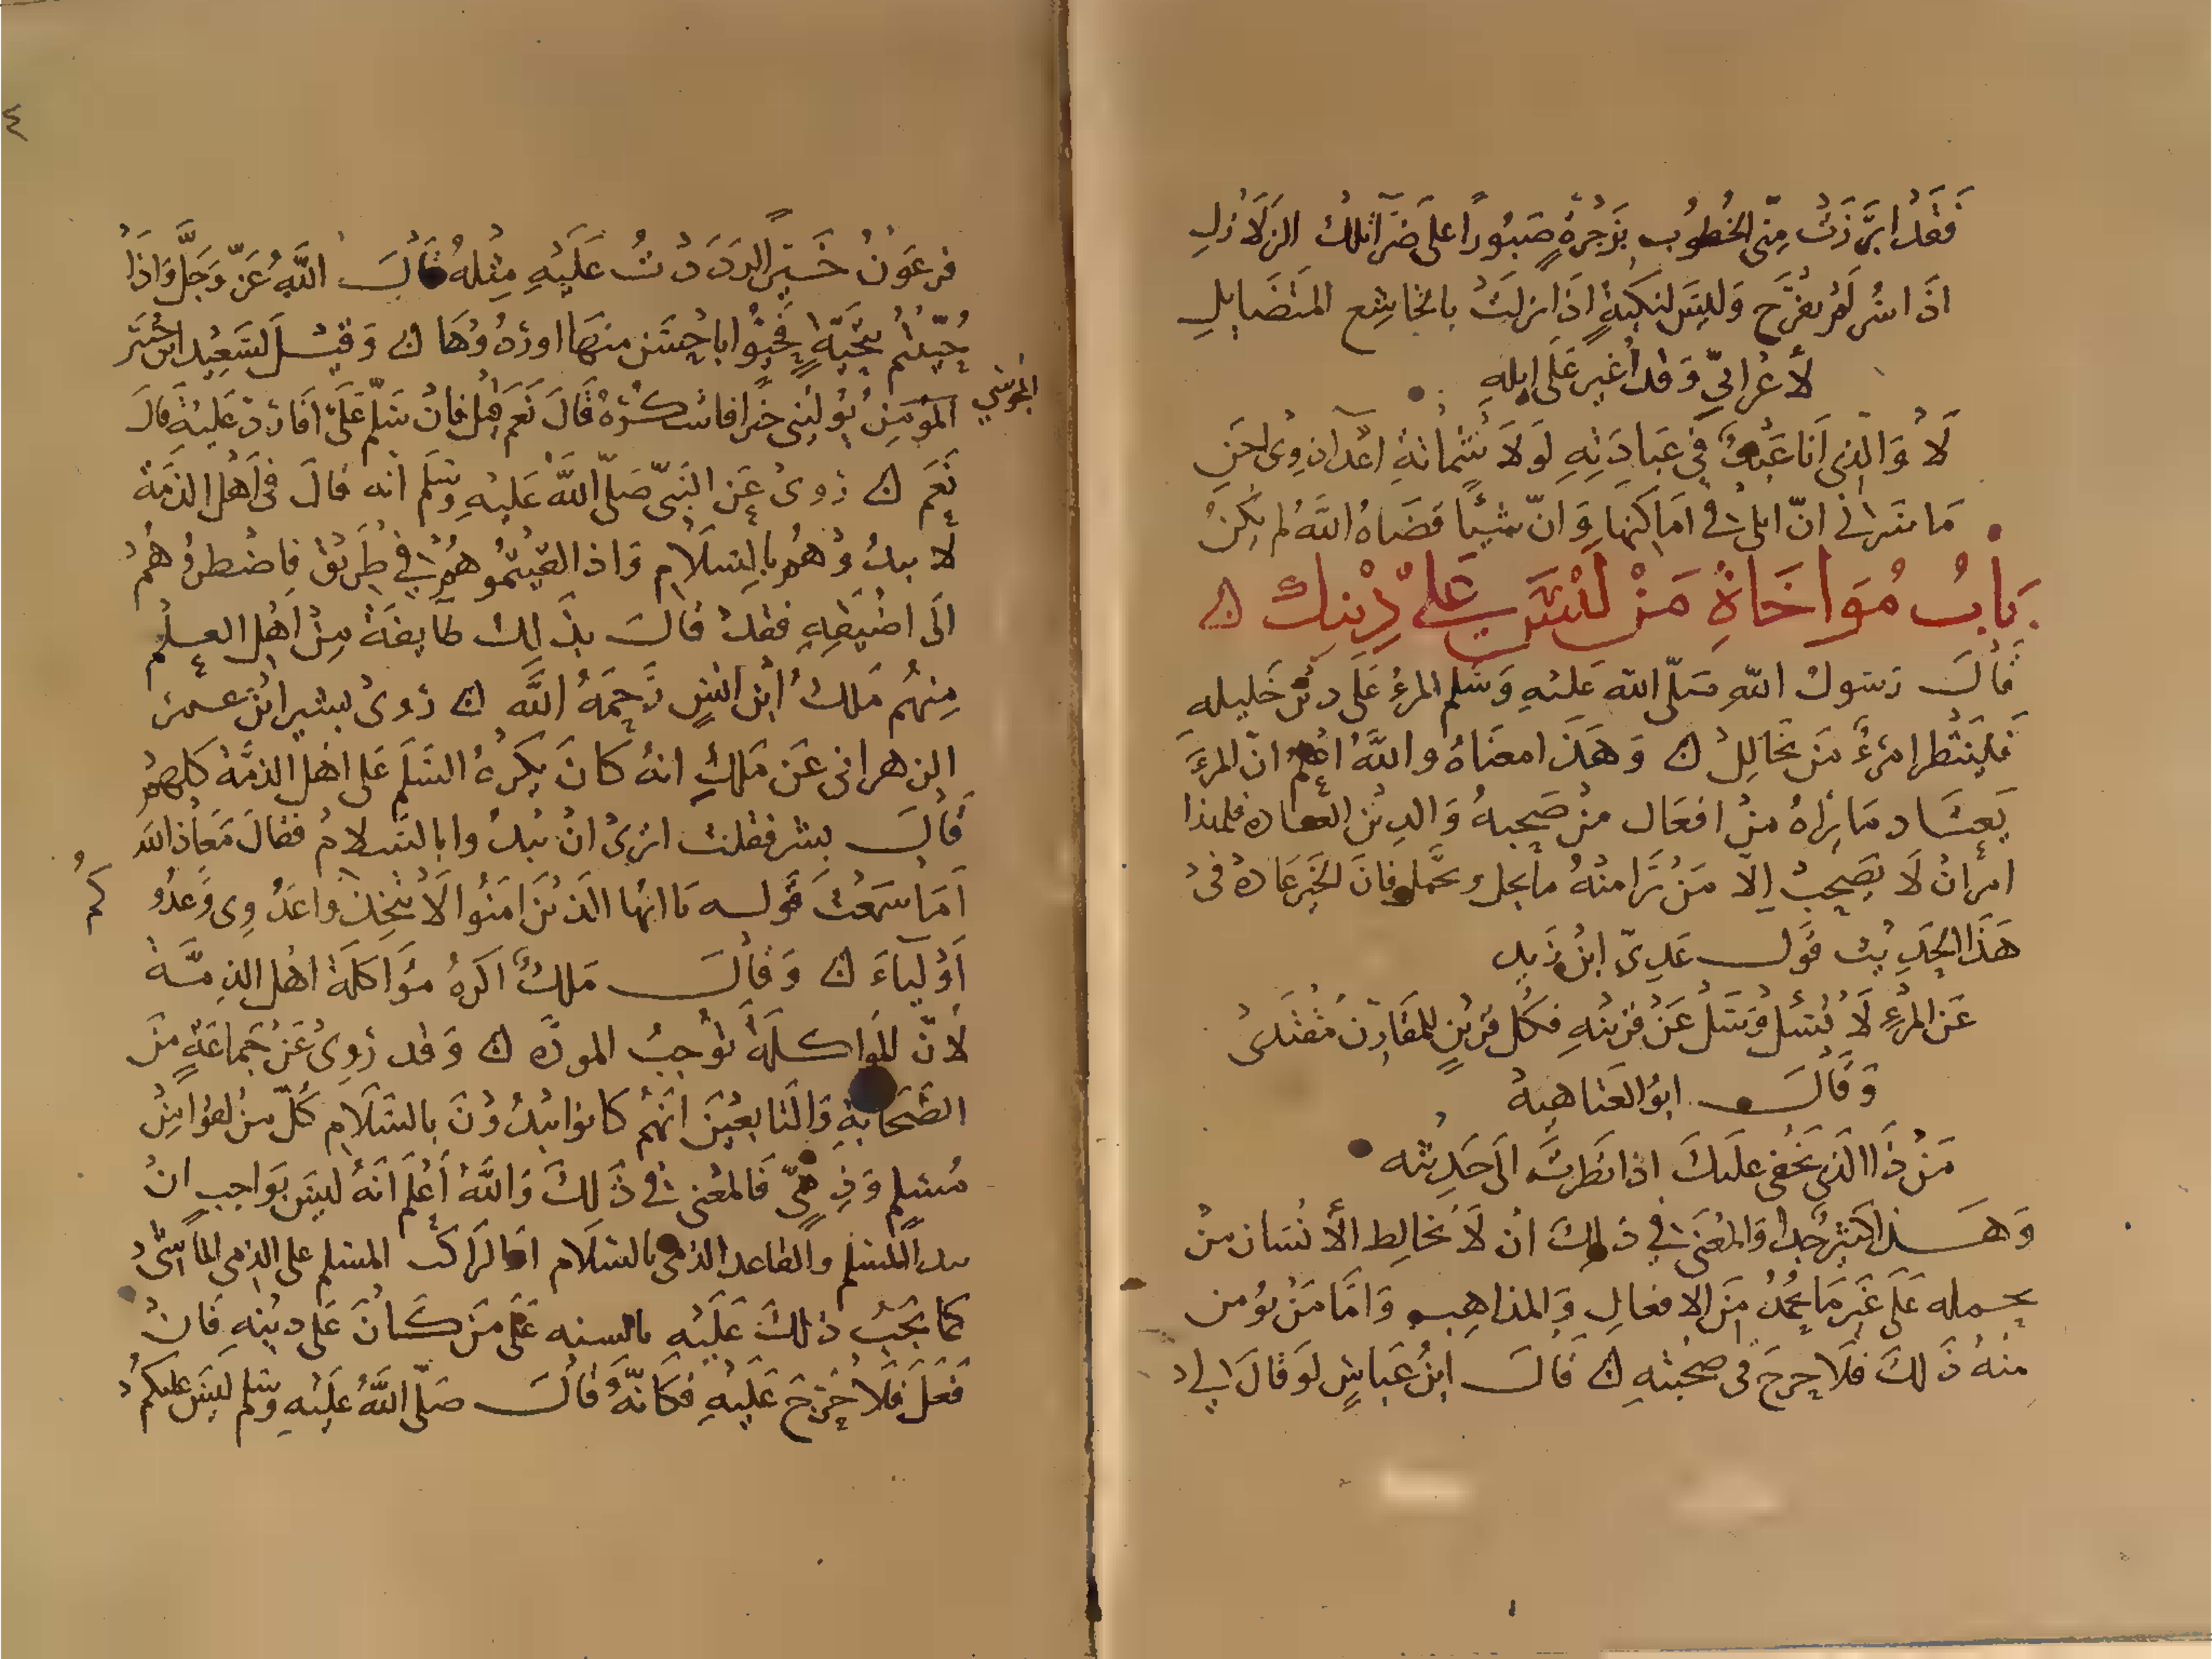 فَقَدْ ابرَزَتْ مِنّى الخُطُوب بزَجْرةٍ صَبُورًا على ضرّا تلك الزلازل
اذَا سُر لم يفْرَح وَليس لنكبةٍ اذَا نزلَتْ بالخاشِع المتضَايلِ
لأعرابيّ وَقد أُغيرَ عَلى ابلهِ
لَا وَالذي اَنا عَبْدٌ في عبَادَتِهِ لَولَا شَمَاتةُ اعْدا ذوى احَنِ
مَا سَرنى انّ ابلى فى امَاكنها وَانّ شيئًا قضَاهُ اللّهُ لم يكنْ
بَابُ مُوَاخَاةِ مَنْ لَيْسَ عَلى دِيْنِكَ ن
قَالَ رَسول اللّه صَلّى اللّه عَليْهِ وَسَلم المرءُ عَلَى دِيْن خَليله
فَليَنْظر امرؤٌ مَن يخَالِلْ ن وَهَذَا معنَاهُ واللَّهُ اعْلم انّ المرءَ
يَعتَاد مَا يرَاهُ منْ افعَال منْ صَحِبهُ وَالدِيْن العَادة فلهذا
امرَ انْ لَا يَصْحَبْ اِلّا مَنْ يرَا منْهُ مَا يحل ويجمل فانَ الخَيرَ عَادة فى
هَذَا الحَدِيْث قَول عَدِىّ ابْن زَيدٍ
عَنِ المرْءِ لَا تَسْئلْ وَسَلْ عَنْ قرِيْنهِ فكُل قرِيْنٍ للمقَارِن مُقتَدى
وَقَالَ ابُو العَتاهيةْ
مَنْ ذَا الذي يَخْفى عليكَ اذا نَظَرتَ الَى حَدِيْثه
وَهَذا كثيرٌ جدا وَالمعْنَى في ذلكَ ان لَا يُخالِط الأنْسَان منْ
يحمله عَلَى غَيرِ مَا يُحْمدُ مِنَ الافعالِ وَالمذاهِب وَامّا مَنْ يؤمن
منهُ ذَلكَ فلَا حرجَ فى صُحْبتهِ ن قَالَ ابْنُ عَبّاسٍ لَو قَالَ لى
فرعَوْنُ خَيرًا لردَدْتُ عَلَيْهِ مِثْلهُ قَالَ اللّهُ عَزّ وَجَلَّ وَاذَا
حُيّيْتُمْ بتَحِيَّةٍ فَحَيُّوا باحْسَن منهَا اورُدُوْهَا ن وَقيْل لسَعِيْد ابْن جُبَير
المجُوسِي
المؤمِنُ يُوليْنى خيرا فاشكُرهُ قَالَ نَعَم قيْل فانْ سَلّم عَلَىّ افَاردّ عَلَيْهِ قالَ
نَعَم ن رُوىَ عَنِ النَبىّ صَلّى اللَّه عَليْهِ وسَلم انه قالَ فى اَهْل الذمَّة
لا تبدُوْهُمْ بالسَلَامِ وَاذا لقيْتُمُوهُمْ في طَرِيْق فاضْطرُوْهُمْ
الَى اضيَقِهِ فقدْ قالَ بذَلكَ طَايفَة مِنْ اَهْل العِلْم
مِنهُم مَلكُ ابْن انسٍ رَحِمَهُ اللَّه ن رُوىَ بشر ابْن عمَر
الزهرانى عَن مَلكٍ انهُ كَانَ يكرَهُ السَلَم عَلى اهْل الذمَّة كلهم
قَالَ بشر فقلت اتَرىْ انْ نبدُوا بالسَلامْ فقالَ مَعَاذَ اللّه
اَمَا سَمِعْتَ قَوله يَا ايُّها الذيْن آمَنُوا لَا تَتخذُوا عَدُوِى وَعَدُو
كُم
اَوْلياءَ ن وَقَالَ مَلكٌ اكرهُ مؤاكلَةَ اهْل الذمَّة
لأنّ المواكلَةْ تُوْجبُ المودَّه ن وَقد رُوِىَ عَنْ جَماعَةٍ مِنَ
الصَّحَابَةِ وَالتَابعيْنَ انّهُم كانوا يبْدَوُنَ بالسَلَام كلّ مَن لقوا مِنْ
مُسْلِمٍ وَذِمِّىٍّ فَالمعْنى في ذَلكَ وَاللَّهُ اَعْلم اَنَهُ ليسَ بوَاجبٍ انْ
يبدا المسْلم والقاعد الذمى بالسَلَام اوالرَاكب المسلم على الذمى الماشى
كما يَجبُ ذلكَ عَلَيْهِ بالسنهِ عَلَى مَن كَانَ عَلى ديْنهِ فانْ
فَعَلَ فلَا حَرَجَ عَلَيْهِ فكَانّهُ قَالَ صَلّى اللَّهُ عَلَيْهِ وَسَلم لَيسَ عليكُم